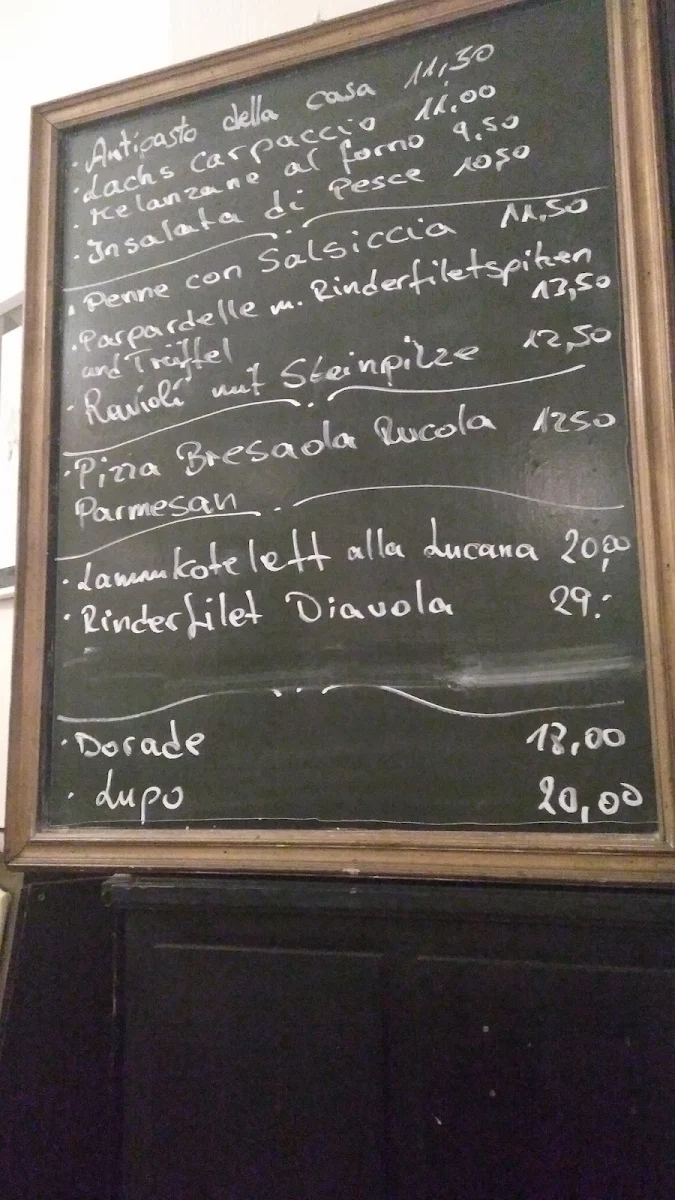 · Antipasto della casa 11,50
· Lachs Carpaccio 11,00
· Melanzane al forno 9,50
· Insalata di Pesce 10,50
· Penne con Salsiccia 11,50
· Parpardelle m. Rinderfiletspitzen
and Trüffel 13,50
· Ravioli mit Steinpilze 12,50
· Pizza Bresaola Rucola 1250
Parmesan
· Lammkotelett alla Lucana 20,00
· Rinderfilet Diavola 29.-
· Dorade 18,00
· Lupo 20,00